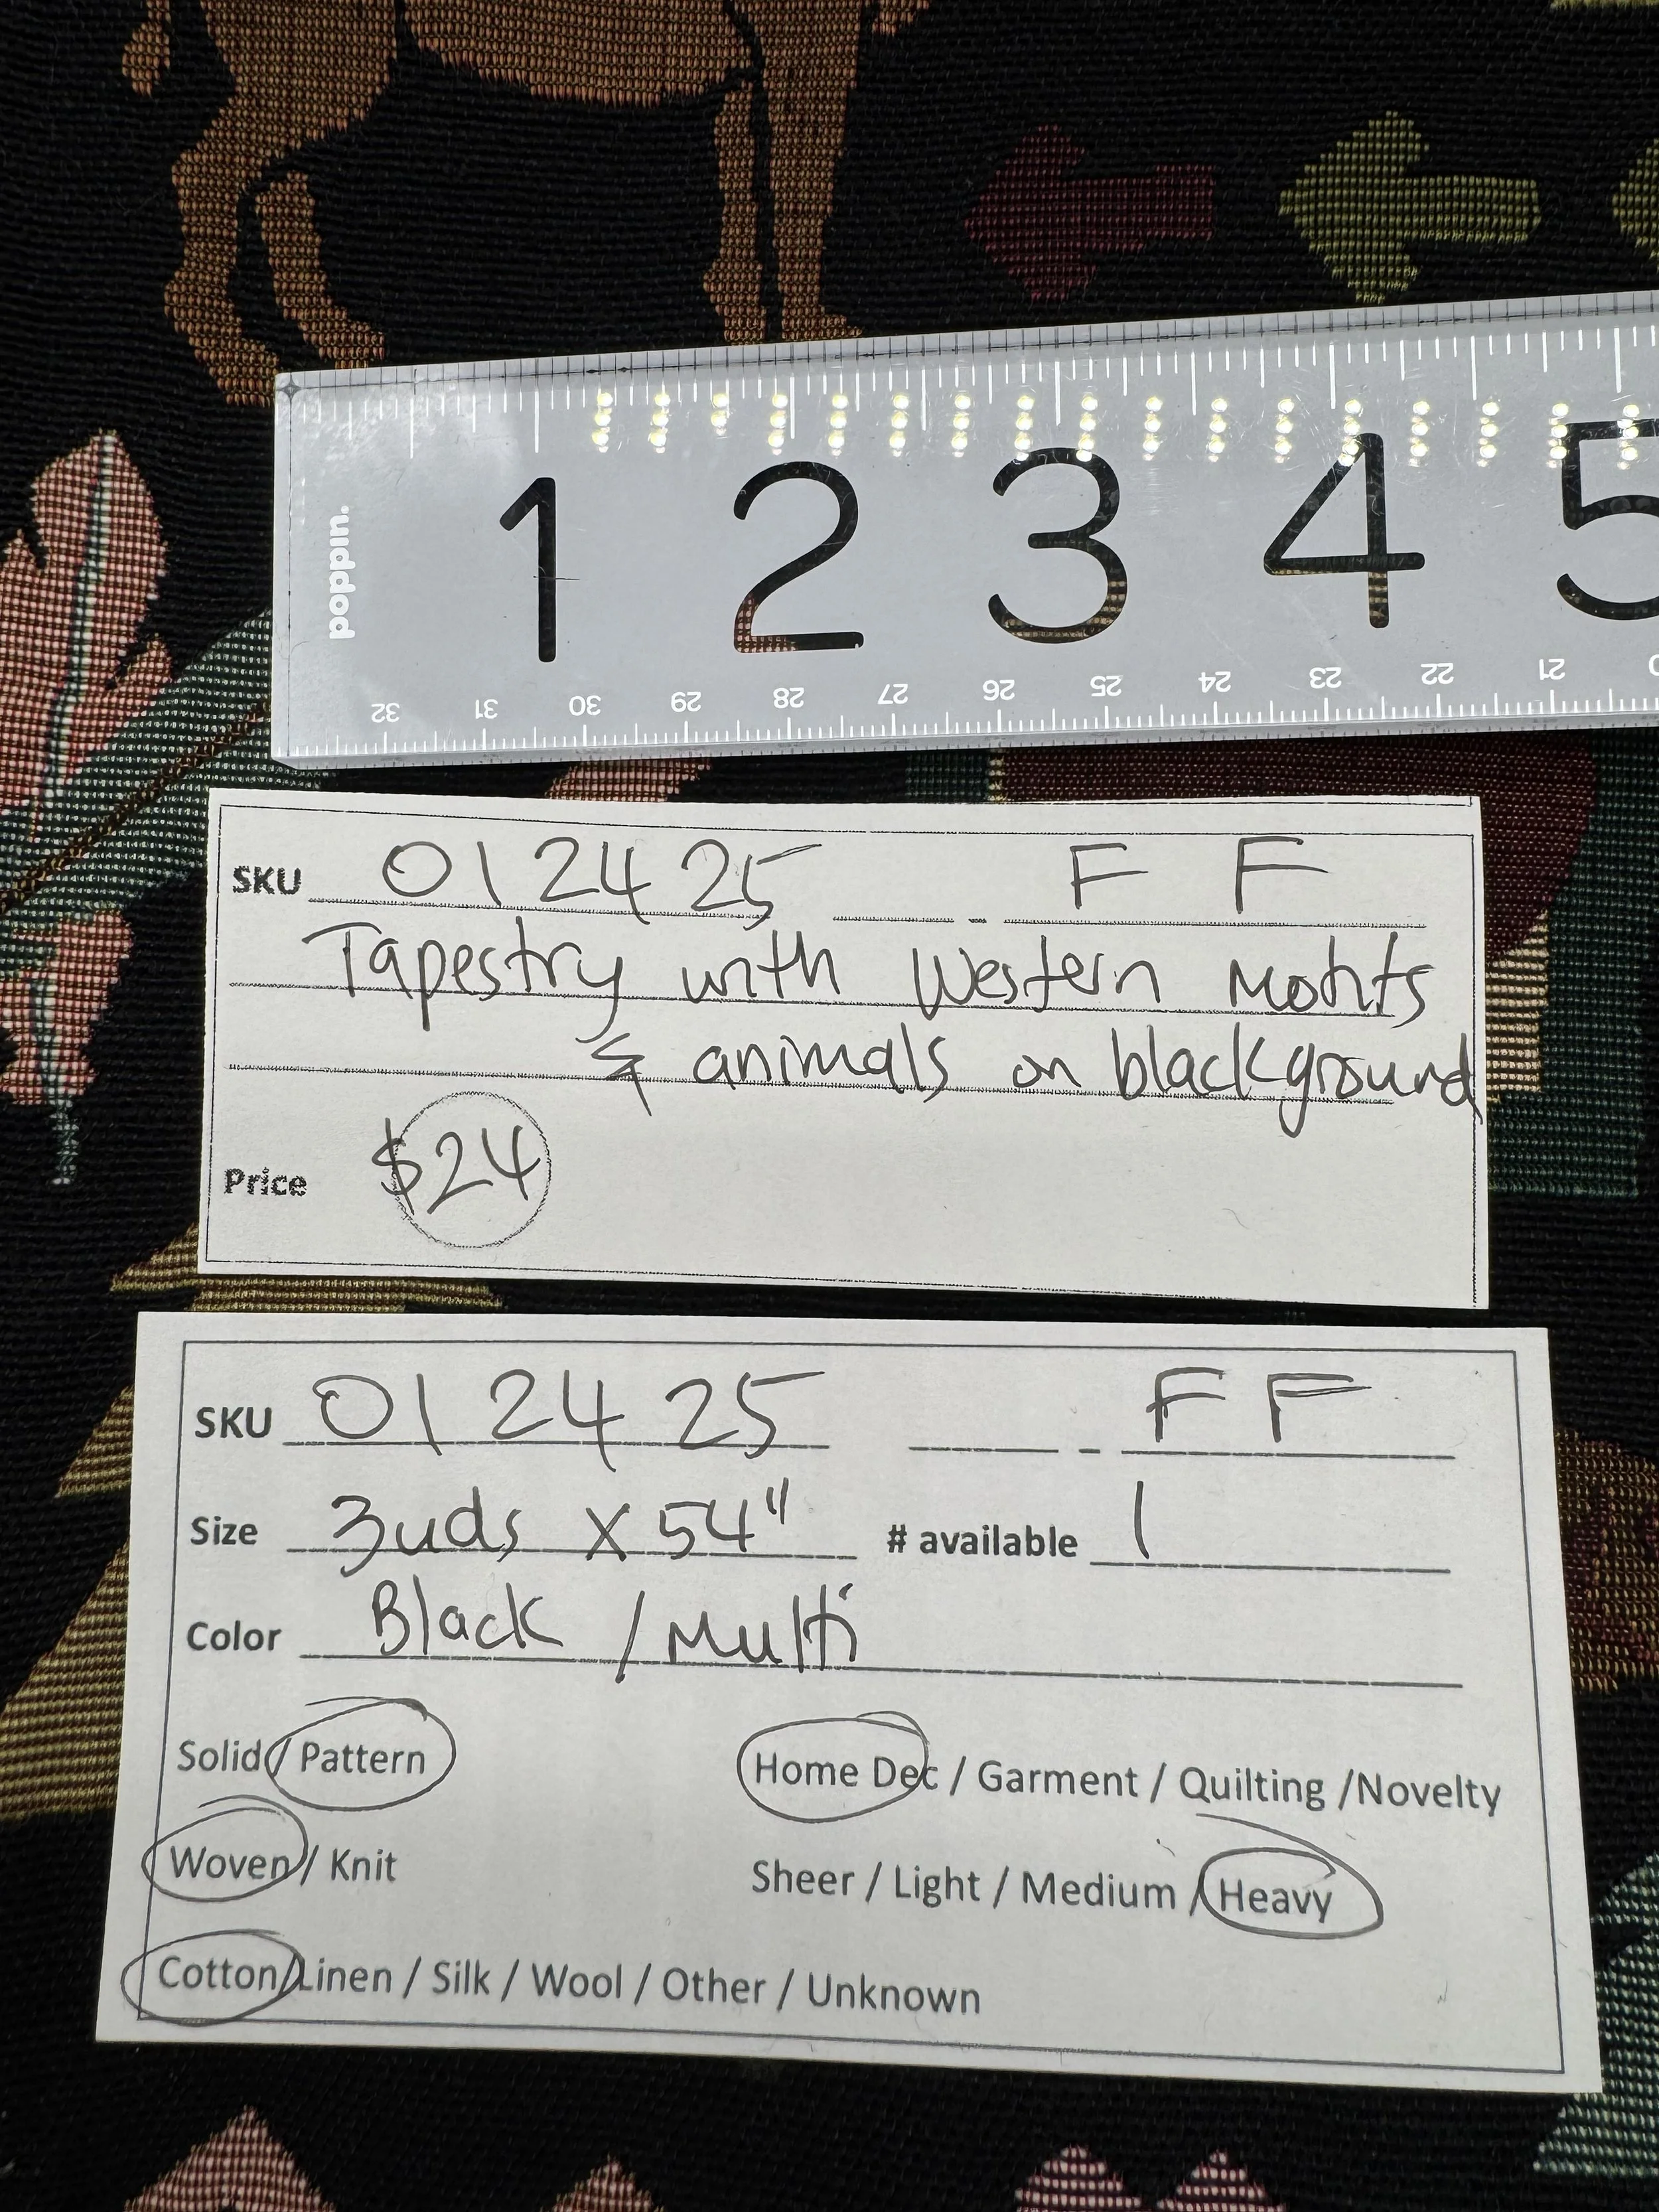 1 2 3 4 5
poppin.
32 31 30 29 28 27 26 25 24 23 22 21
SKU 012425 - FF
Tapestry with Western Motifs
& animals on blackground
Price $24
SKU 012425 - FF
Size 3yds x 54" # available 1
Color Black / Multi
Solid / Pattern Home Dec / Garment / Quilting /Novelty
Woven / Knit Sheer / Light / Medium / Heavy
Cotton/Linen / Silk / Wool / Other / Unknown